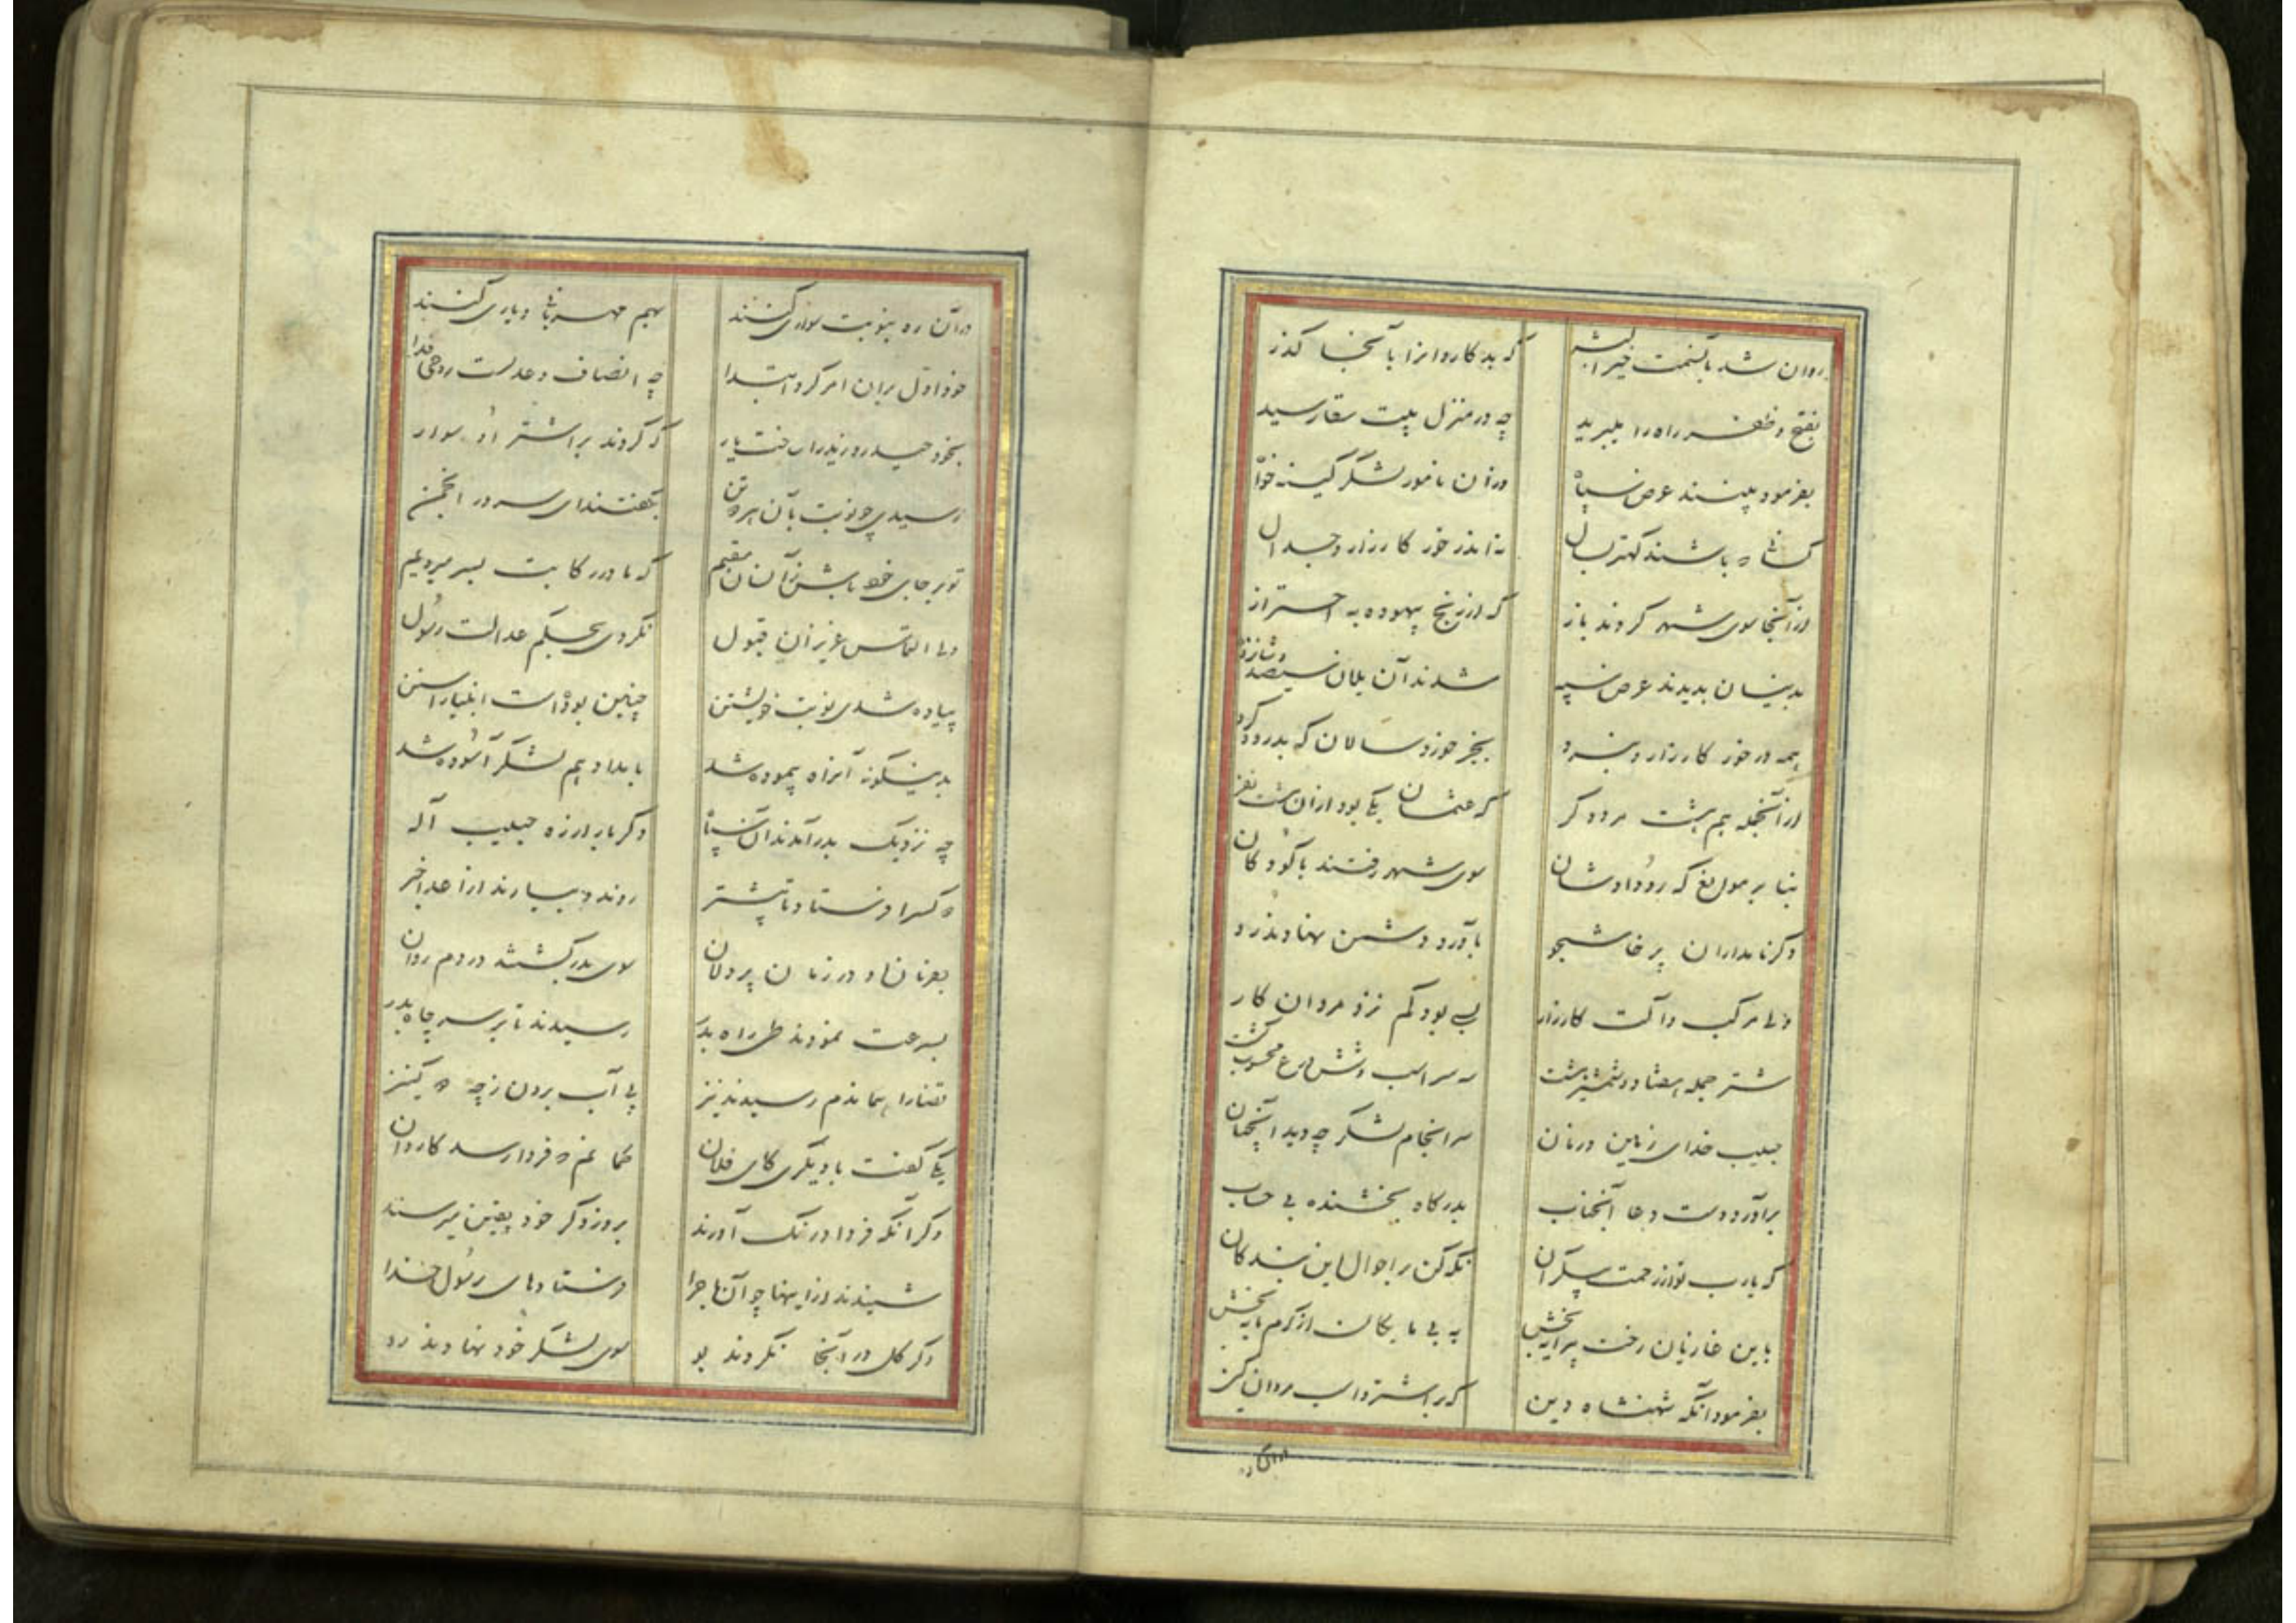 روان شد بآنسمت خیر البشر که بد کاروانرا بآنجا کذر
بفتح و ظفر راه را میبرید چه در منزل بیت سقا رسید
بفرمود بینند عرض سپاه در آن نامور لشکر کینه خواه
کسانی که باشند کهتر بسال نه اندر خور کارزار و جدال
از آنجا سوی شهر کردند باز که از رنج بیهوده به احتراز
بدینسان بدیدند عرض سپه شدند آن یلان سیصد
همه در خور کارزار و نبرد بجز خورد سالان که بدرود کرد
از آنجمله هم هشت مرد دکر که عثمان یکی بود از آن هشت نفر
بنا بر موانع که رو دادشان سوی شهر رفتند با کودکان
دکر نامداران پرخاشجو بآورد دشمن نهادند رو
ولی مرکب و آلت کارزار بسی بود کم نزد مردان کار
شتر جمله هفتاد و شمشیر هشت سه اسب و شش درع محسوب کشت
حبیب خدای زمین و زمان سر انجام لشکر چه دید آنچنان
برآورد دست دعا آنجناب بدرکاه بخشنده بی حساب
که یارب تو از رحمت بیکران نکه کن بر احوال این بندکان
باین غازیان رخت پیرایه بخش به بی مایکان از کرم مایه بخش
بفرمود آنکه شهنشاه دین که بر اشتر و اسب مردان کین
در آن ره
در آن ره بنوبت سواری کنند بهم مهربانی و یاری کنند
خود اول بر آن امر کرد ابتدا چه انصاف و عدلست روحی فدا
بخود حیدر و زید را ساخت یار که کردند بر اشتر او سوار
رسیدی چو نوبت بآن هر دو تن بگفتند ای سرور انجمن
تو بر جای خود باش زآنسان مقیم که ما در رکابت بسر میرویم
ولی التماس عزیزان قبول نکردی بحکم عدالت رسول
پیاده شدی نوبت خویشتن چنین بوده است انبیا را سنن
بدینگونه آنراه پیموده شد بامداد هم لشکر آسوده شد
چه نزدیک بدر آمدند آن سپاه دکر بار از ره حبیب آله
دو کس را فرستاد تا پیشتر روند و بیارند از اعدا خبر
بفرمان او در زمان پر دلان سوی بدر کشتند در دم روان
بسرعت نمودند طی راه بدر رسیدند تا بر سر چاه بدر
قضا را هماندم رسیدند نیز پی آب بردن ز چه دو کنیز
یکی گفت با دیکری کای فلان کما نم که فردا رسد کاروان
وکر آنکه فردا درنک آورند بروز دکر خود یقین میرسند
شنیدند از اینها چو آن ماجرا فرستادهای رسول خدا
دکر کل در آنجا نکردند بو سوی لشکر خود نهادند رو